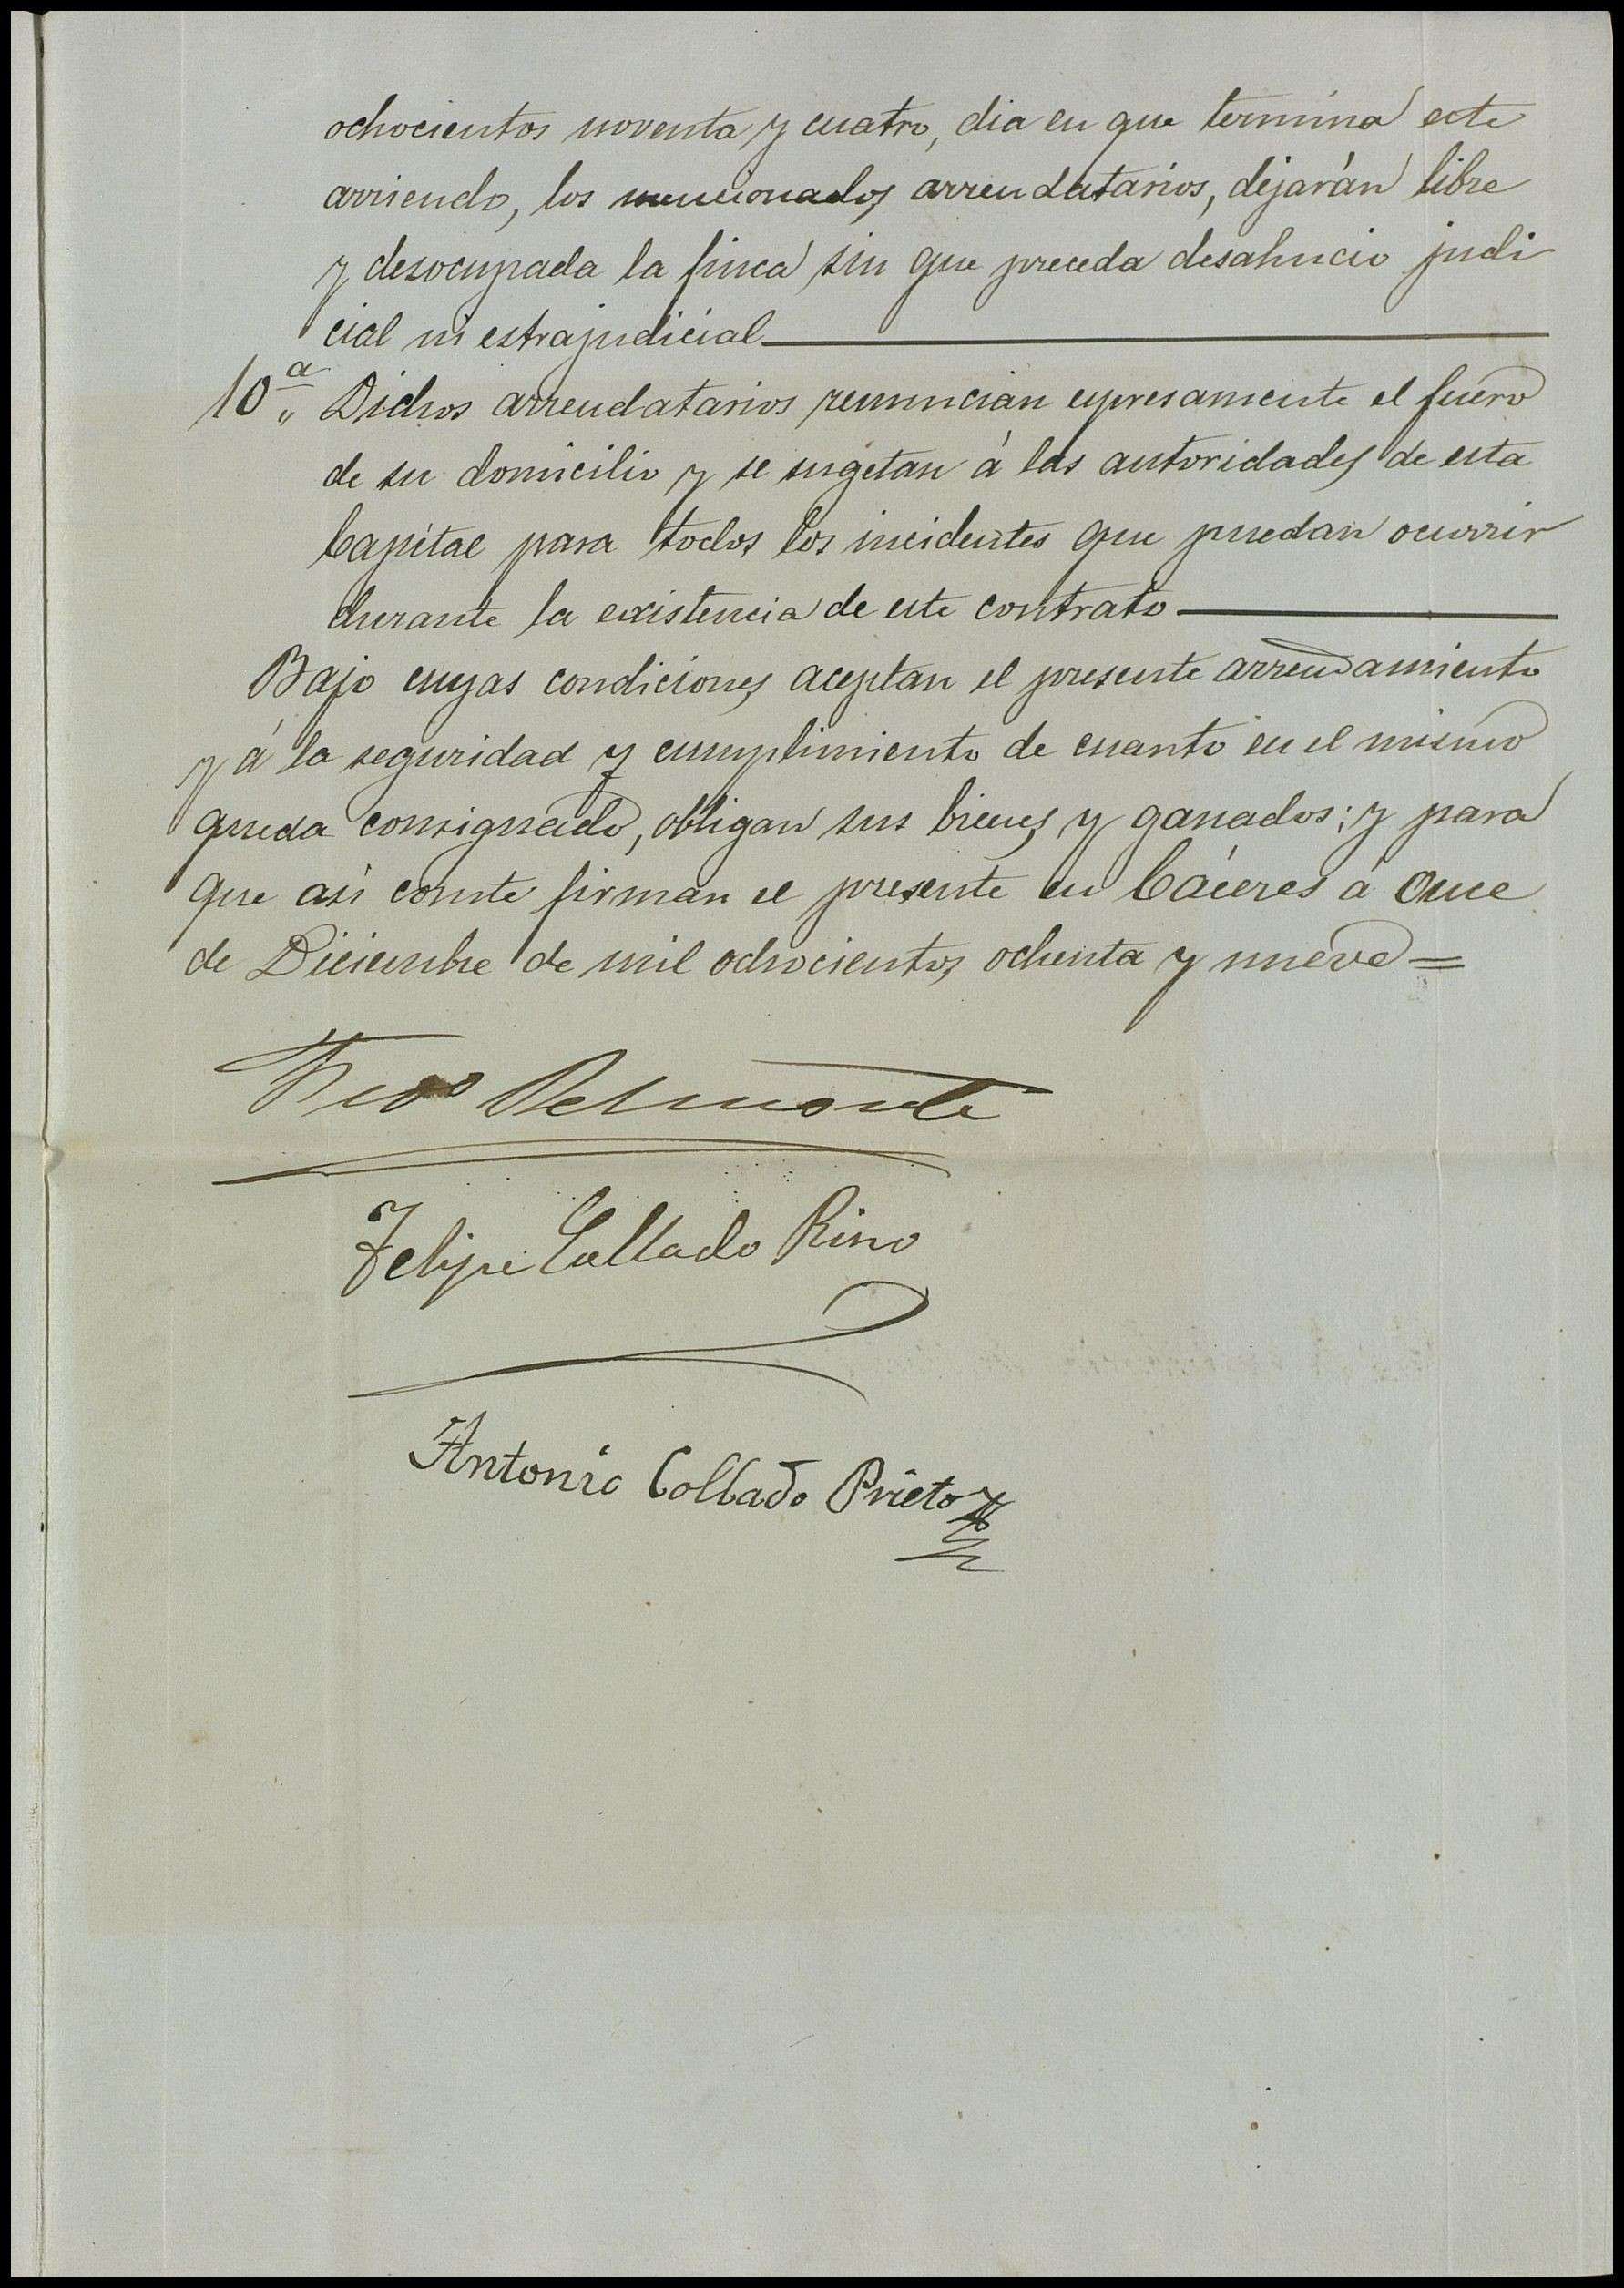 ochocientos noventa y cuatro, dia en que termina este
arriendo, los mencionados arrendatarios, dejarán libre
y desocupada la finca sin que preceda desahucio judi
cial ni estrajudicial
10ª " Dichos arrendatarios renuncian expresamente el fuero
de su domicilio y se sugetan á las autoridades de esta
Capital para todos los incidentes que puedan ocurrir
durante la existencia de este contrato
Bajo cuyas condiciones aceptan el presente arrendamiento
y á la seguridad y cumplimiento de cuanto en el mismo
queda consignado, obligan sus bienes y ganados; y para
que asi conste firman el presente en Cáceres á Once
de Diciembre de mil ochocientos ochenta y nueve =
Belmonte
Felipe Collado Rino
Antonio Collado Prieto